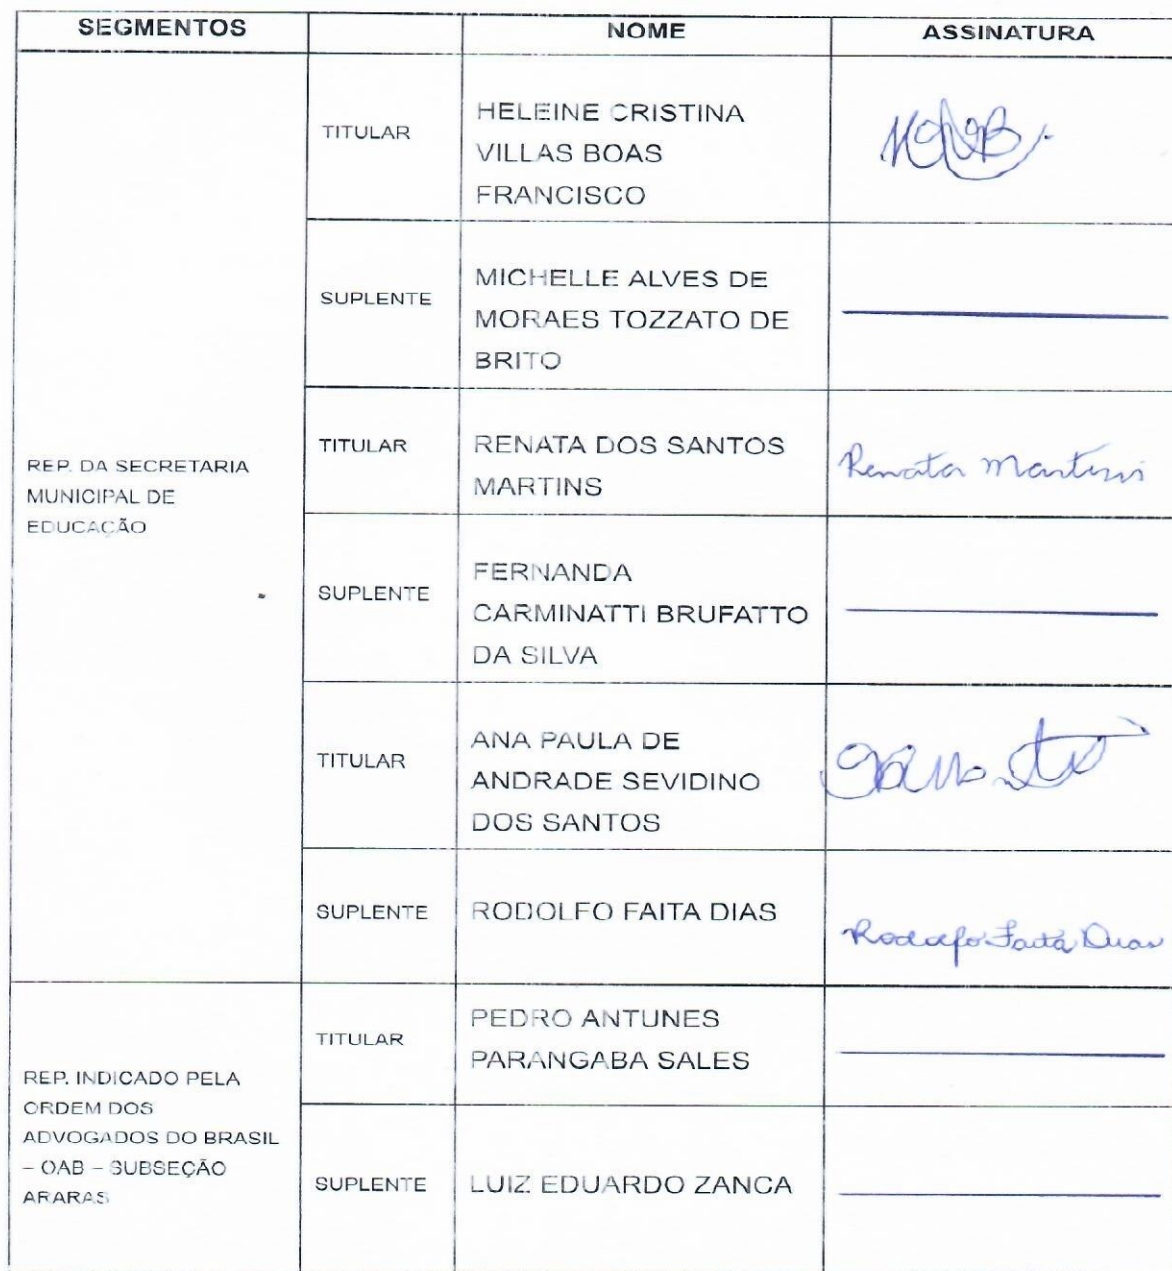 SEGMENTOS NOME ASSINATURA
REP. DA SECRETARIA
MUNICIPAL DE
EDUCAÇÃO
TITULAR
HELEINE CRISTINA
VILLAS BOAS
FRANCISCO
SUPLENTE
MICHELLE ALVES DE
MORAES TOZZATO DE
BRITO
TITULAR
RENATA DOS SANTOS
MARTINS
Renata Martins
SUPLENTE
FERNANDA
CARMINATTI BRUFATTO
DA SILVA
TITULAR
ANA PAULA DE
ANDRADE SEVIDINO
DOS SANTOS
SUPLENTE
RODOLFO FAITA DIAS
Rodolfo Faita Dias
REP. INDICADO PELA
ORDEM DOS
ADVOGADOS DO BRASIL
– OAB – SUBSEÇÃO
ARARAS
TITULAR
PEDRO ANTUNES
PARANGABA SALES
SUPLENTE
LUIZ EDUARDO ZANCA